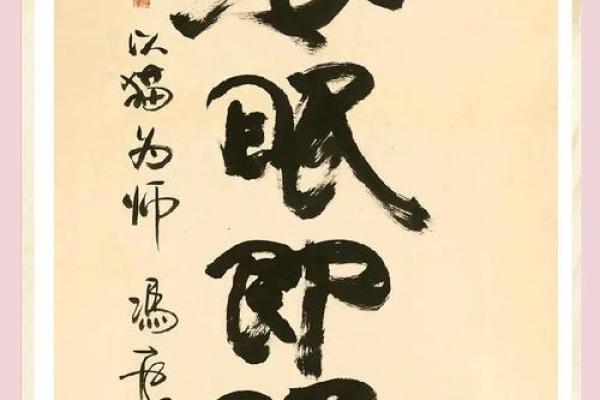 眠即
以猫为师 冯